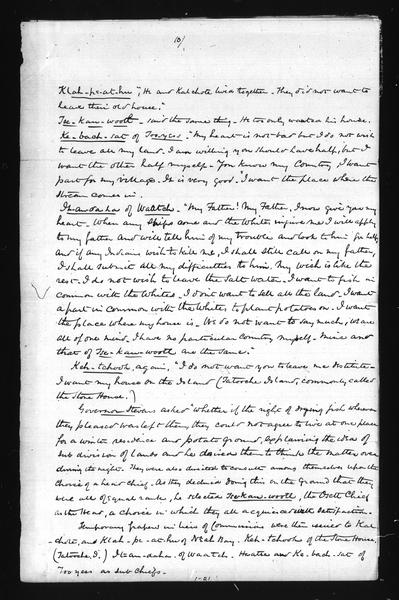 10/
Klah-pe-at-hu, "He and Kalchote lived together. They did not want to
leave their old house."
Tse-kaw-wootl - said the same thing - He too only wanted his house.
Ke-bach-sat of Tooyess. "My heart is not bad but I do not wish
to leave all my land. I am willing you should have half, but I
want the other half myself - You know my Country, I want
part for my village. It is very good. I want the place where the
stream comes in.
It-an-da-ha of Waatch. "My Father! My Father, I now give you my
heart. When any ships come and the Whites injure me I will apply
to my father and will tell him of my trouble and look to him for help
and if any Indians wish to kill me, I shall still call on my father,
I shall submit all my difficulties to him. My wish is like the
rest. I do not wish to leave the Salt water. I want to fish in
common with the Whites. I don't want to sell all the land. I want
a part in common with the Whites to plant potatoes on. I want
the place where my house is. We do not want to say much, we are
all of one mind. I have no particular Country myself. Mine and
that of Tse-kaw-wootl are the same."
Keh-tchook, again, "I do not want you to leave me destitute -
I want my house on the Island (Tatoche Island, commonly called
the Stone House.)
Governor Stevens asked whether if the right of drying fish wherever
they pleased was left them, they could not agree to live at one place
for a winter residence and potato ground, explaining the idea of
sub division of lands and he desired them to think the matter over
during the night. They were also desired to consult among themselves upon the
choice of a head chief. As they declined doing this on the Ground that they
were all of equal rank, he selected Tse-kaw-wootl, the Osett Chief
as the Head, a choice in which they all acquiesced with Satisfaction.
Temporary papers in lieu of Commissions were then issued to Kal-
chote, and Klah-pe-at-hu of Neah Bay. Keh-tchook of the Stone House,
(Tatooche I.) It-an-da-ha of Waatch. and Ke-bach-sat of
Tooyess as sub Chiefs.-
1-21